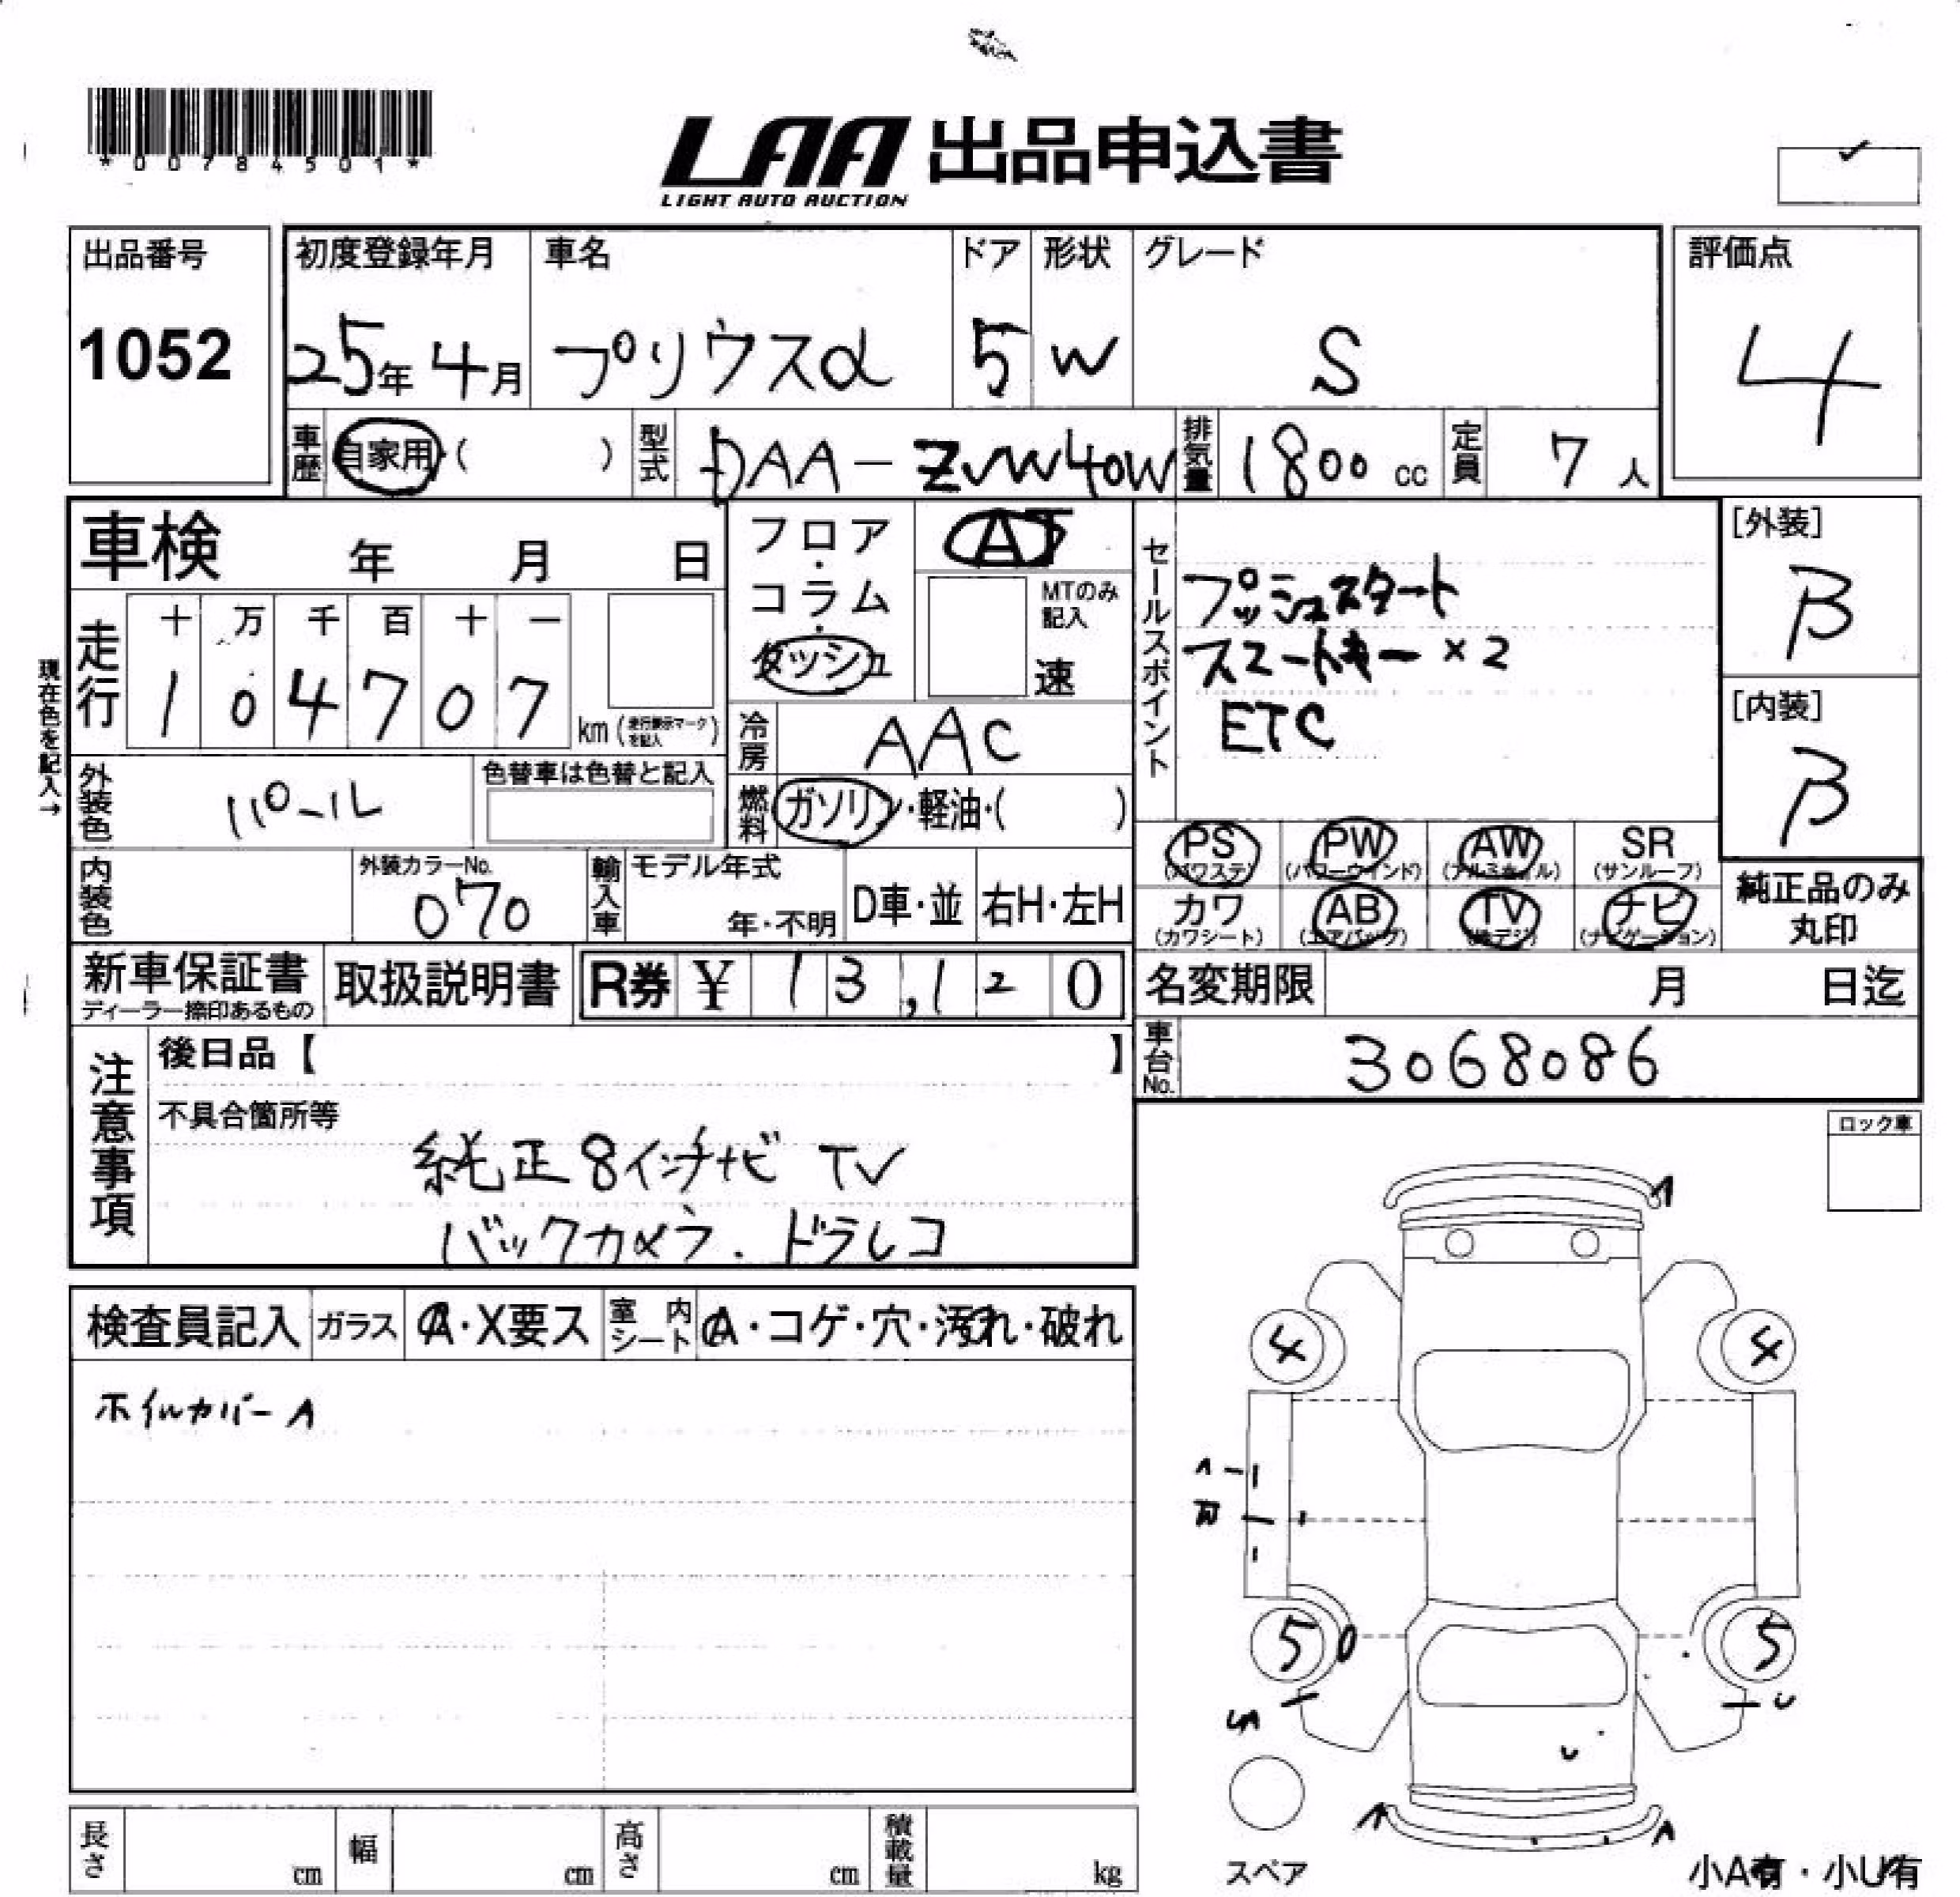 *00784501*
LAA 出品申込書
LIGHT AUTO AUCTION
出品番号
1052
初度登録年月
25年4月
車名
プリウスα
ドア
5
形状
W
グレード
S
評価点
4
車歴 自家用・( )
型式 DAA-ZVW40W
排気量 1800cc
定員 7人
車検 年 月 日
フロア・コラム・ダッシュ
AT
MTのみ記入
速
セールスポイント
プッシュスタート
スマートキー×2
ETC
[外装]
B
[内装]
B
現在色を記入→
走行
十 万 千 百 十 一
1 0 4 7 0 7
km(走行表示マークを記入)
冷房 AAC
外装色 パール
色替車は色替と記入
燃料 ガソリン・軽油・( )
PS(パワステ) PW(パワーウインド) AW(アルミホイル) SR(サンルーフ)
カワ(カワシート) AB(エアバッグ) TV(地デジ) ナビ(ナビゲーション)
純正品のみ丸印
内装色
外装カラーNo. 070
輸入車 モデル年式 年・不明
D車・並 右H・左H
新車保証書
ディーラー捺印あるもの
取扱説明書
R券 ¥13,120
名変期限 月 日迄
車台No. 3068086
注意事項
後日品【 】
不具合箇所等
純正8インチナビ TV
バックカメラ. ドラレコ
ロック車
検査員記入 ガラス A・X要ス 室内シート A・コゲ・穴・汚れ・破れ
ホイルカバーA
A
4 4
A
5 5
U
U
A A
スペア
小A有・小U有
長さ cm 幅 cm 高さ cm 積載量 kg